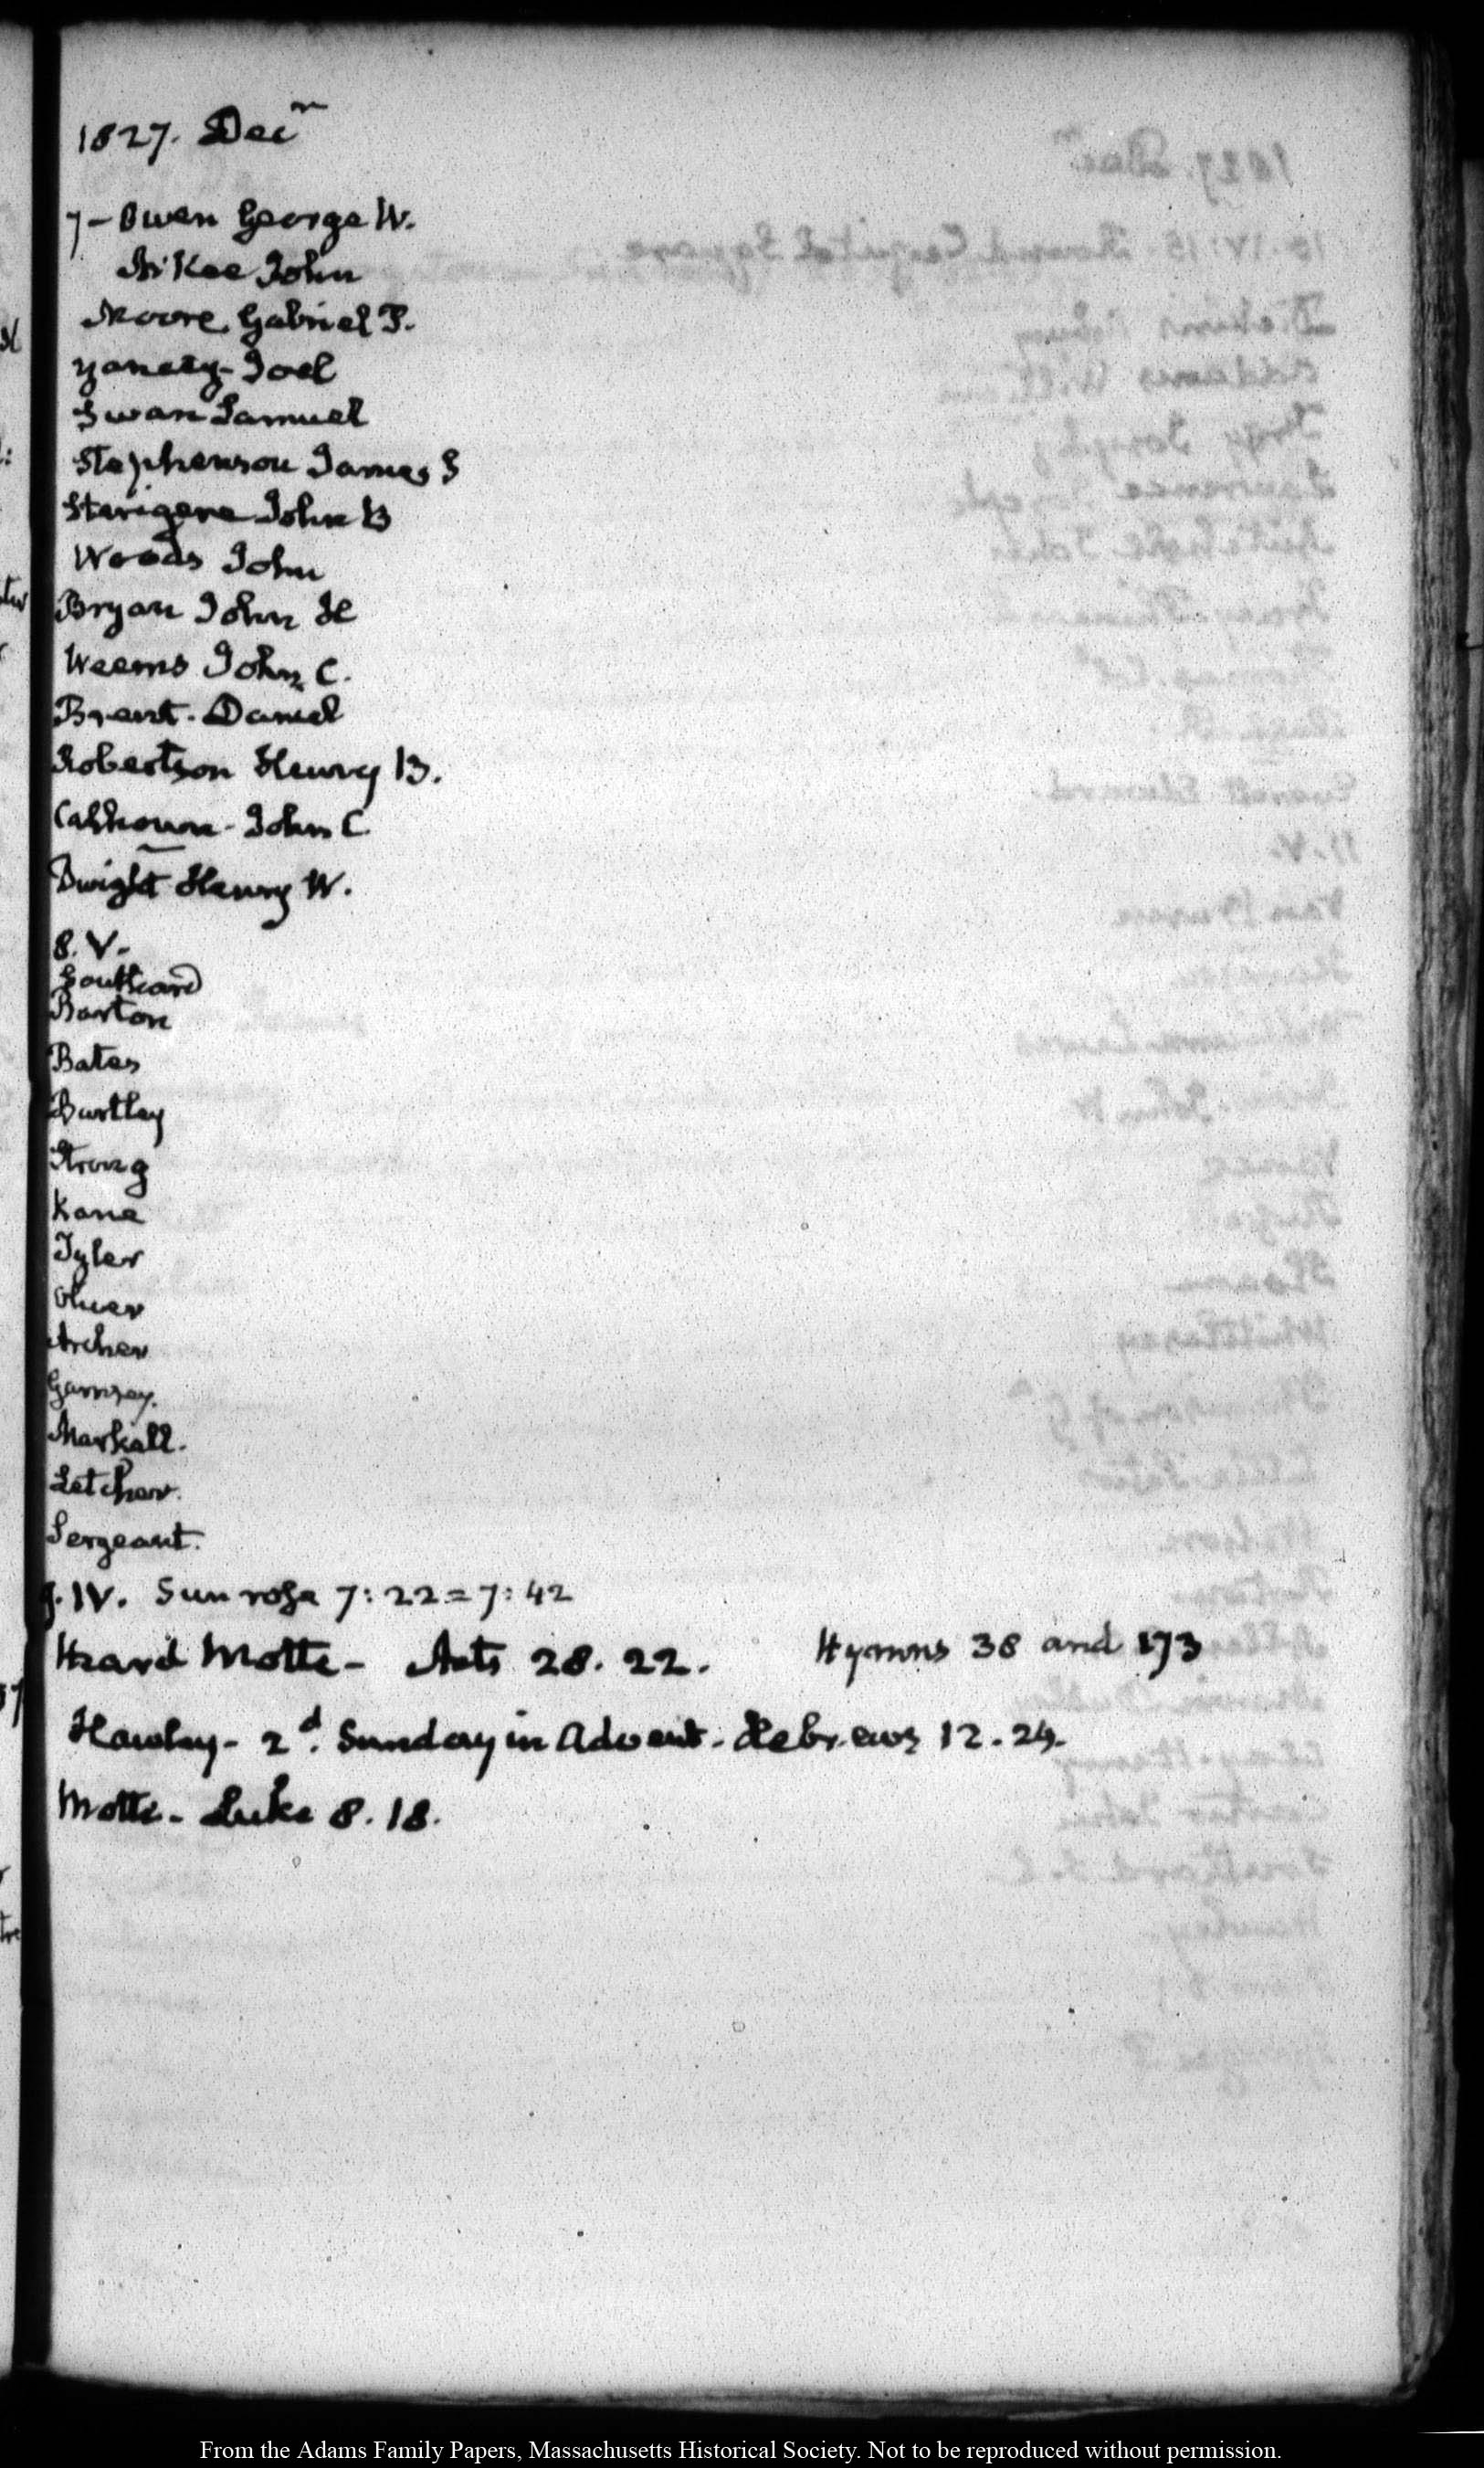 1827. Decr
7 - Owen George W.
McKee John
Moore Gabriel
Yancey - Joel
Swan Samuel
Stephenson James S
Sterigere John B
Woods John
Bryan John H
Weems John C.
Brent - Daniel
Robertson Henry B.
Calhoun - John C
Dwight Henry W.
8. V.
Southard
Barton
Bates
Bartley
Strong
Kane
Tyler
Oliver
Archer
Garnsey.
Markell.
Letcher.
Sergeant.
9. IV. Sun rose 7:22 = 7:42
Heard Motte - Acts 28. 22. Hymns 38 and 173
Hawley - 2d. Sunday in Advent - Hebrews 12. 24.
Motte - Luke 8. 18.
From the Adams Family Papers, Massachusetts Historical Society. Not to be reproduced without permission.